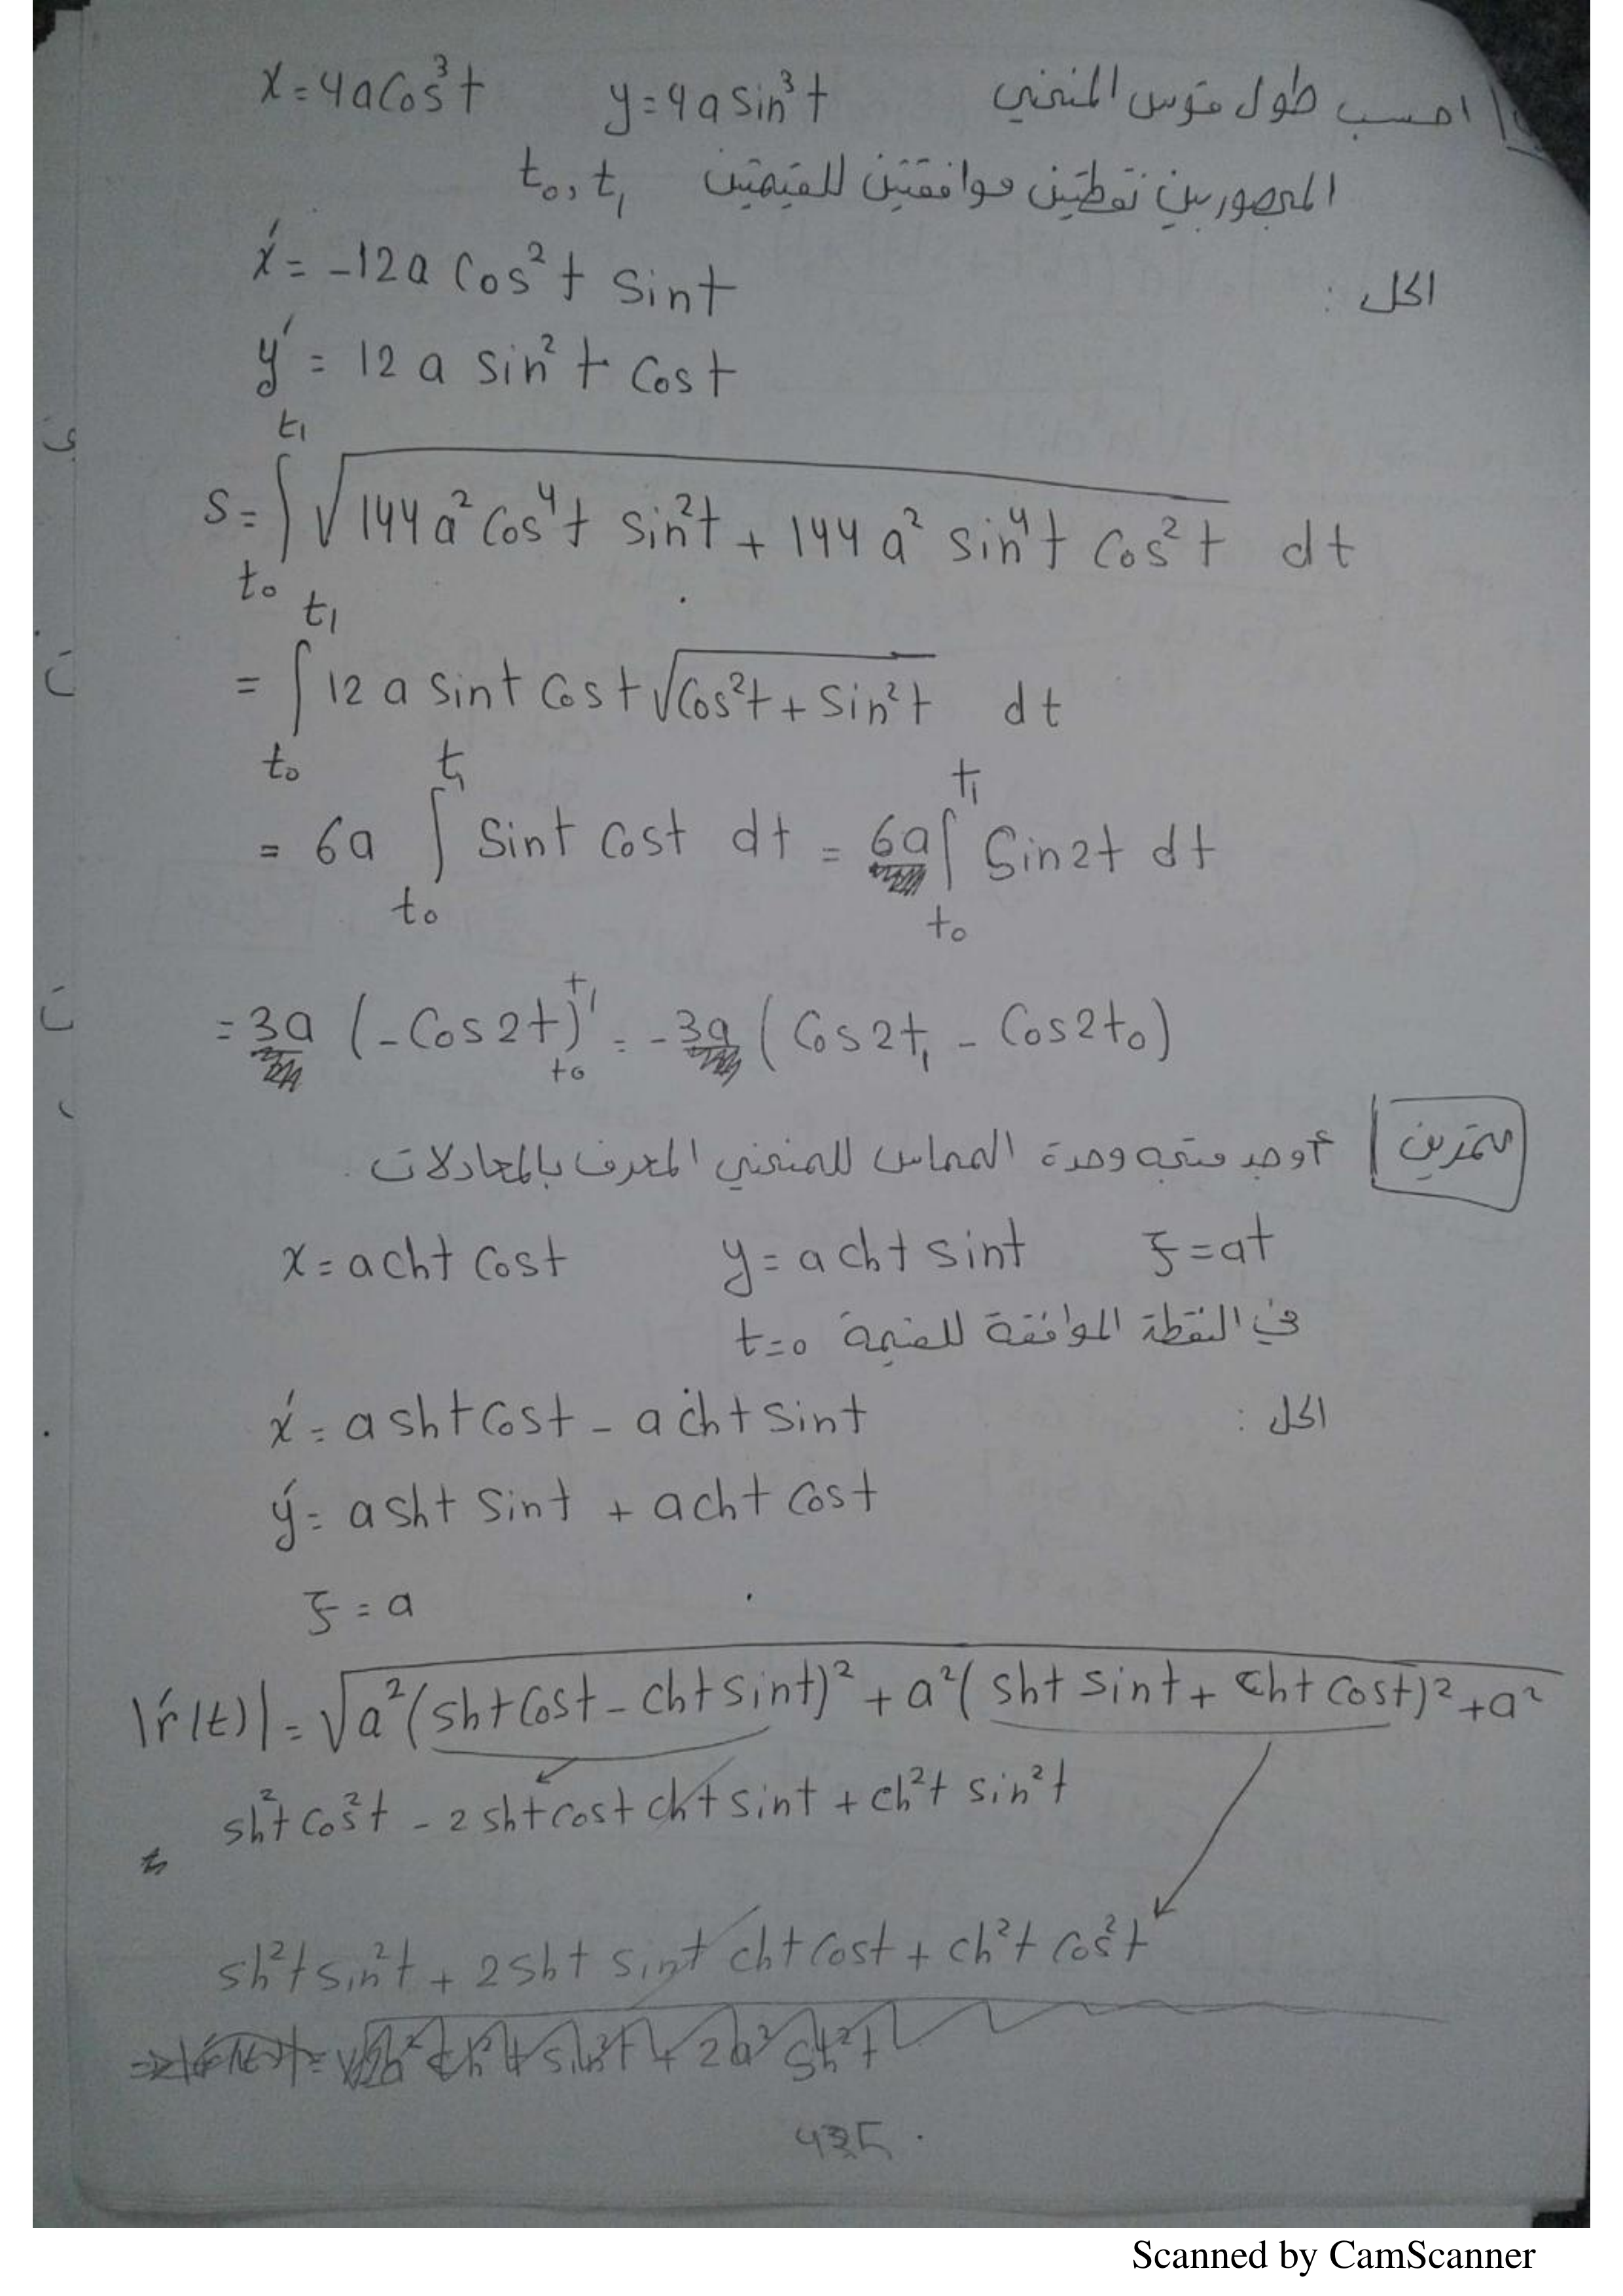 احسب طول قوس المنحني x = 4a cos³t y = 4a sin³t
المحصور بين نقطتين موافقتين للقيمتين t₀, t₁
الحل :
x́ = -12a cos²t sint
ý = 12a sin²t cost
s = ∫_{t₀}^{t₁} √(144a² cos⁴t sin²t + 144a² sin⁴t cos²t) dt
= ∫_{t₀}^{t₁} 12a sint cost √(cos²t + sin²t) dt
= 6a ∫_{t₀}^{t₁} sint cost dt = 6a ∫_{t₀}^{t₁} sin2t dt
= 3a (-cos2t)_{t₀}^{t₁} = -3a (cos2t₁ - cos2t₀)
تمرين | أوجد متجه وحدة المماس للمنحني المعرف بالمعادلات
x = a cht cost y = a cht sint ξ = at
في النقطة الموافقة للقيمة t=0
الحل :
x́ = a sht cost - a cht sint
ý = a sht sint + a cht cost
ξ = a
|ŕ(t)| = √(a²(sht cost - cht sint)² + a²(sht sint + cht cost)² + a²)
sh²t cos²t - 2 sht cost cht sint + ch²t sin²t
sh²t sin²t + 2 sht sint cht cost + ch²t cos²t
Scanned by CamScanner